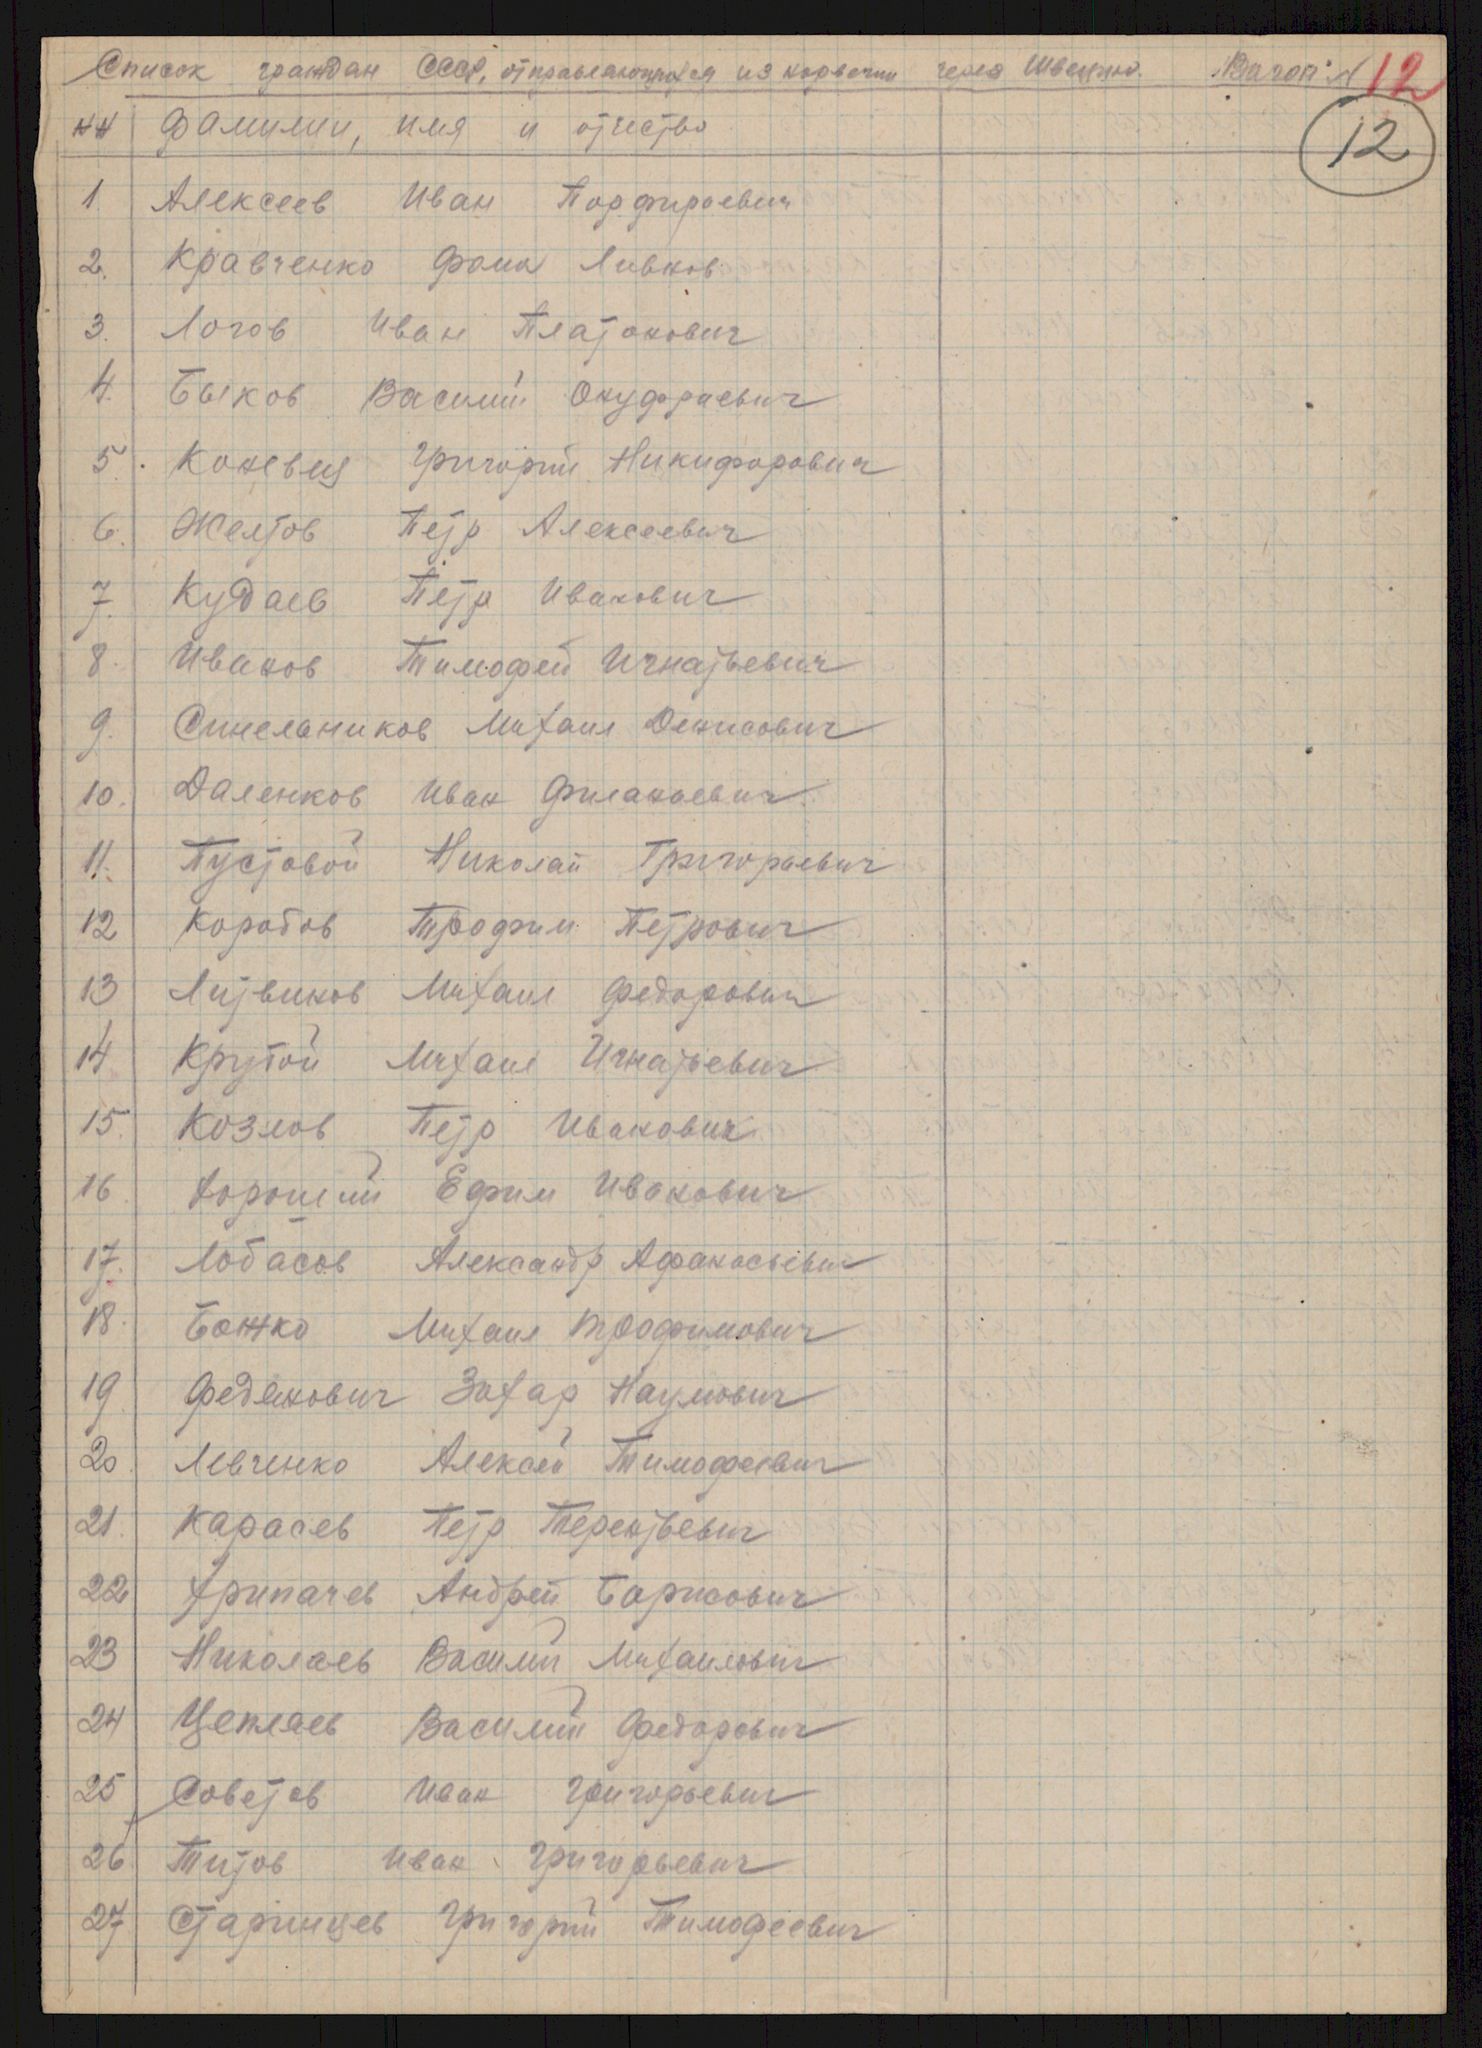 Список граждан СССР, отправляющихся из Норвегии через Швецию. Вагон N 12
12
NN Фамилии, имя и отчество
1 Алексеев Иван Порфирьевич
2. Кравченко Фома
3. Логов Иван Платонович
4. Быков Василий Онуфриевич
5. Коневец Григорий Никифорович
6. Желтов Петр Алексеевич
7. Кудаев Петр Иванович
8. Иванов Тимофей Игнатьевич
9. Синельников Михаил Денисович
10. Даленков Иван
11. Пустовой Николай Григорьевич
12 Коробов Трофим Петрович
13 Литвинов Михаил Федорович
14 Крутой Михаил Игнатьевич
15. Козлов Петр Иванович
16. Хороший Ефим Иванович
17. Лобасов Александр Афанасьевич
18. Божко Михаил Трофимович
19 Федянович Захар Наумович
20 Левченко Алексей Тимофеевич
21. Карасев Петр Терентьевич
22 Хрипачев Андрей Борисович
23 Николаев Василий Михайлович
24 Цепляев Василий Федорович
25 Советов Иван Григорьевич
26 Титов Иван Григорьевич
27 Старинцев Григорий Тимофеевич